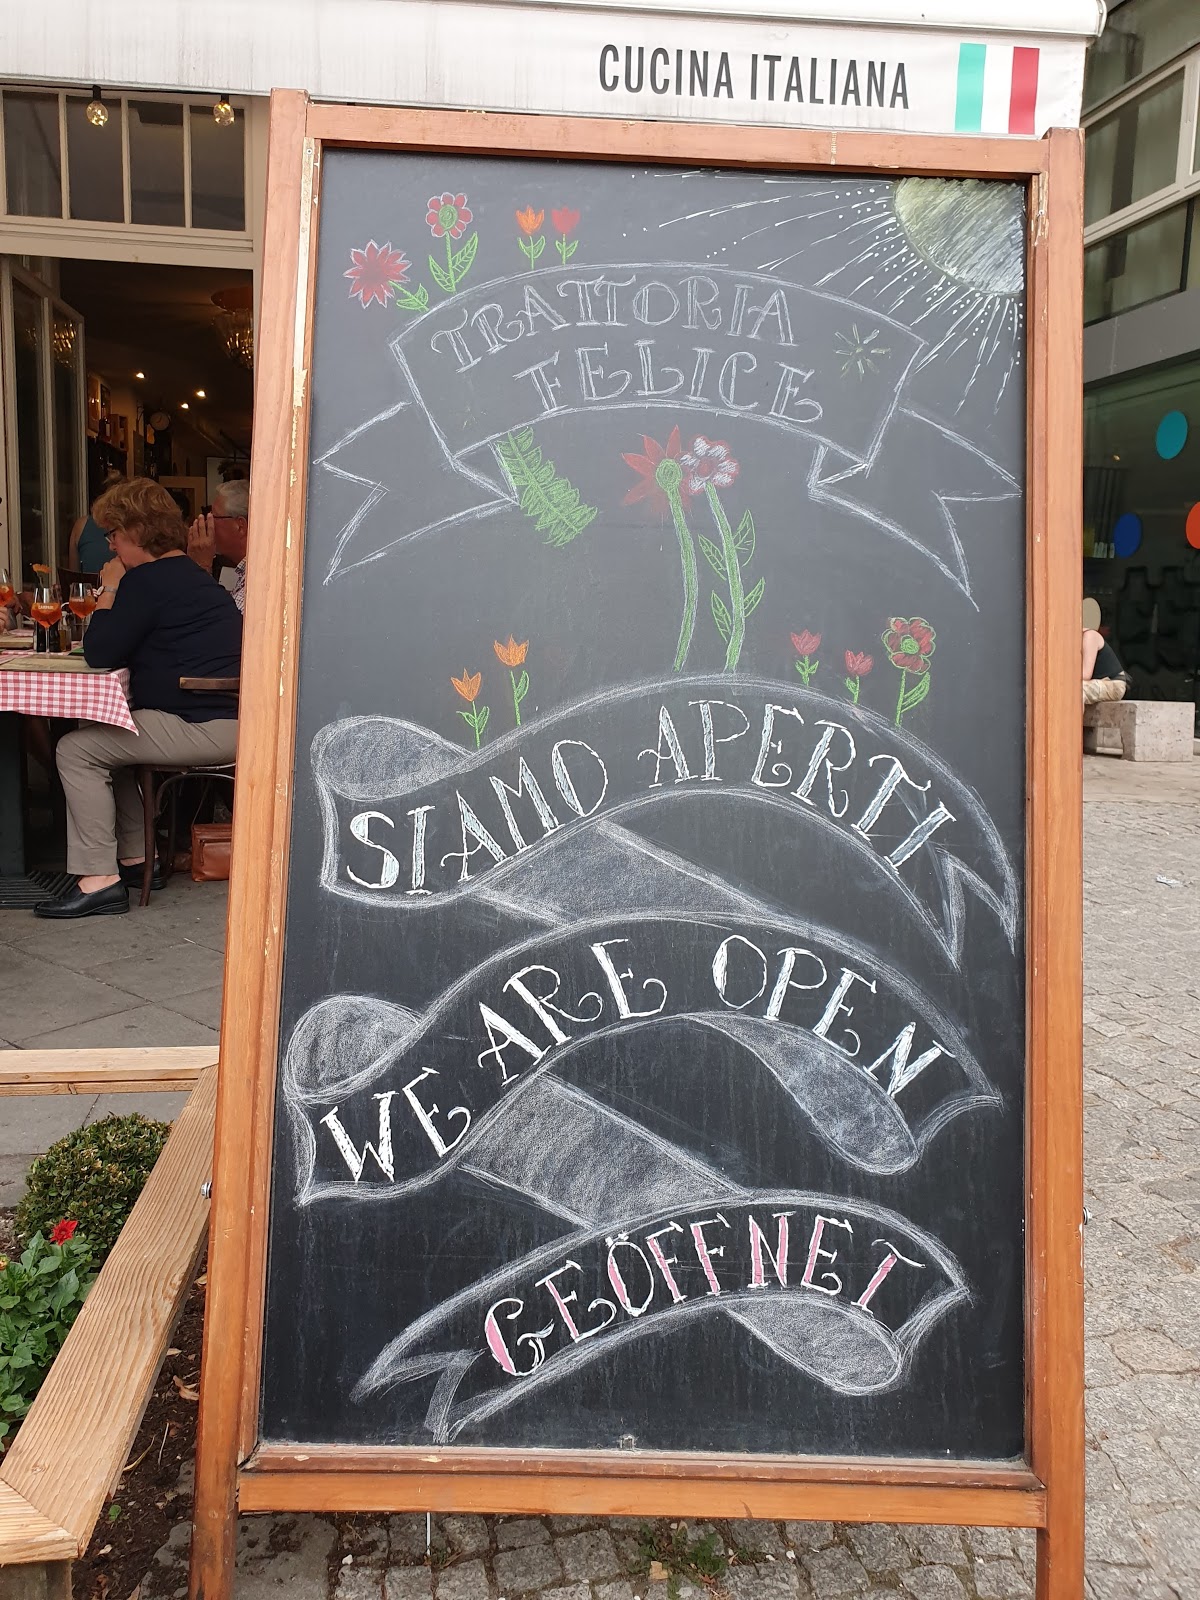 CUCINA ITALIANA
TRATTORIA
FELICE
SIAMO APERTI
WE ARE OPEN
GEÖFFNET